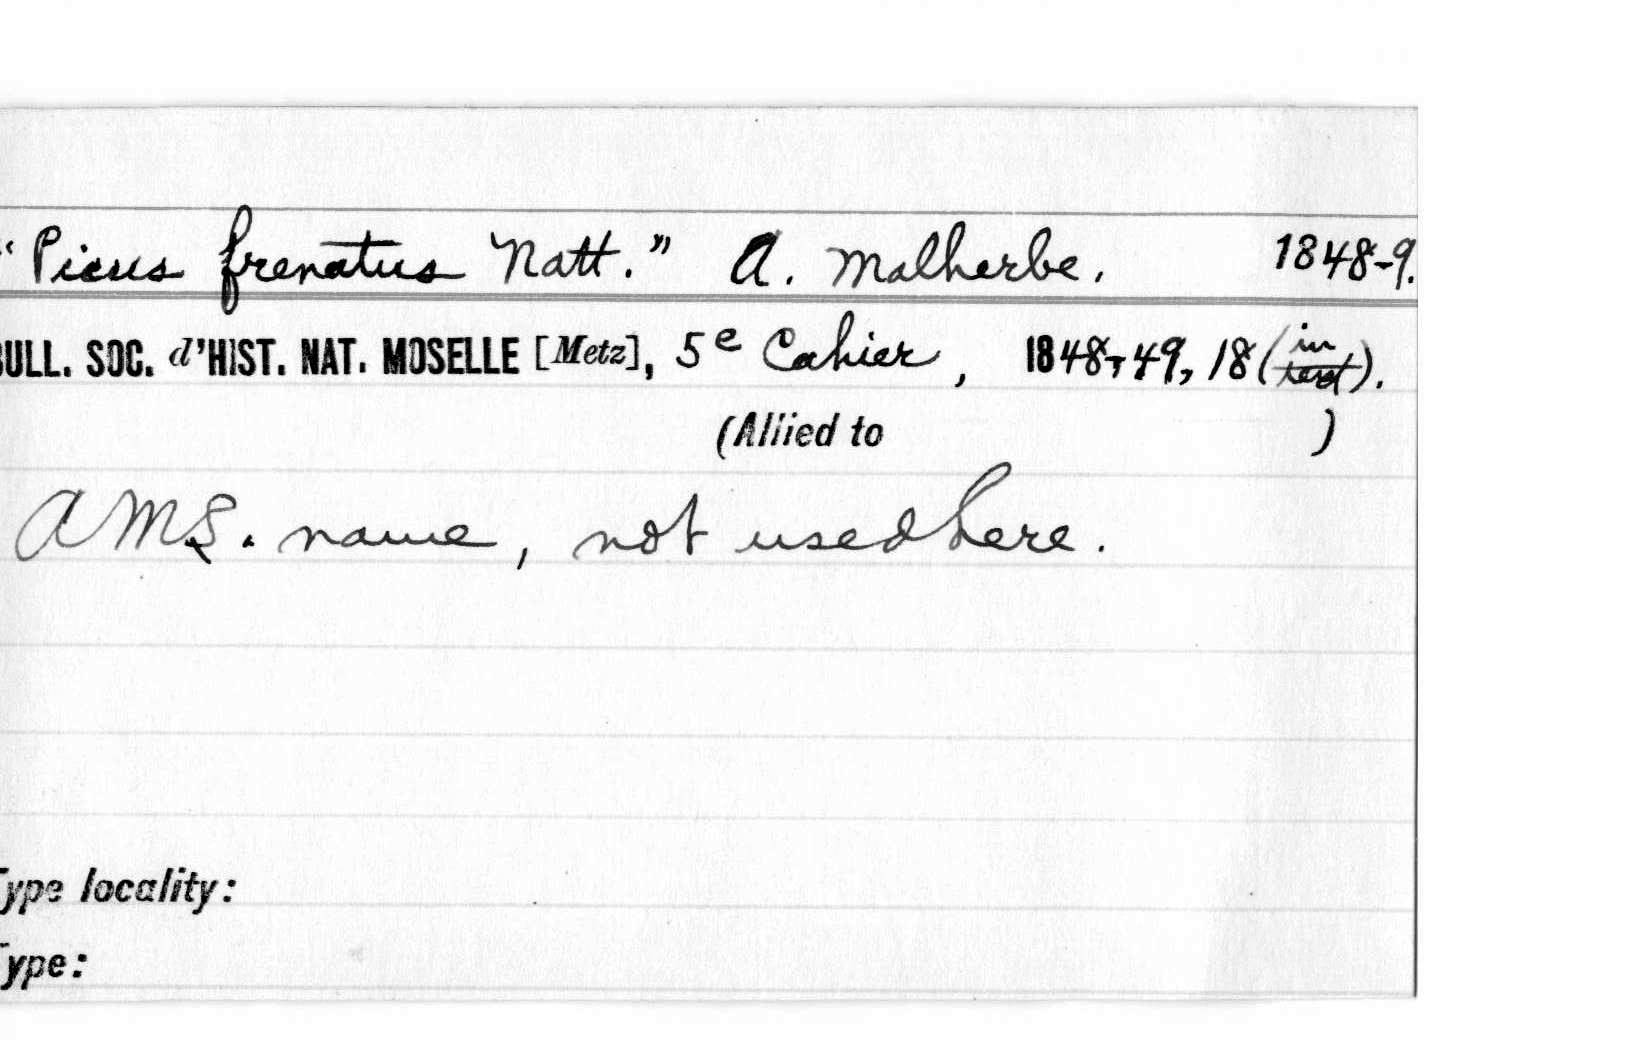 “Picus frenatus Natt.” A. Malherbe. 1848-9.
BULL. SOC. d’HIST. NAT. MOSELLE [Metz], 5e Cahier, 1848-49, 18 (in text).
(Allied to )
A MS. name, not used here.
Type locality:
Type: